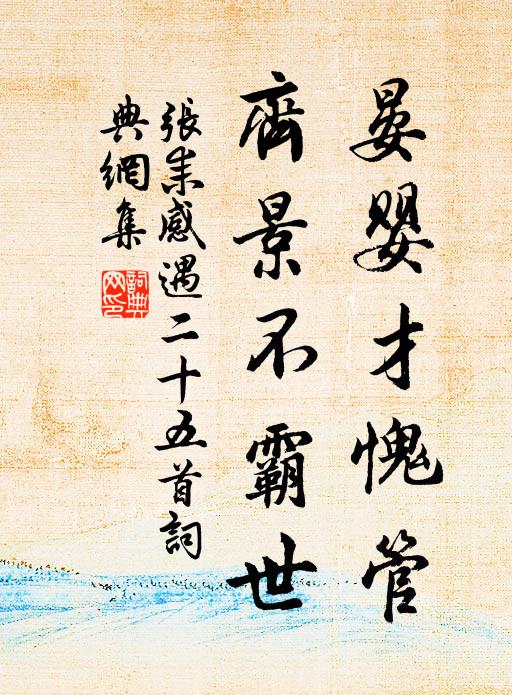 晏嬰才愧管
齊景不霸世
張耒感遇二十五首詞
典網集
詞典网印